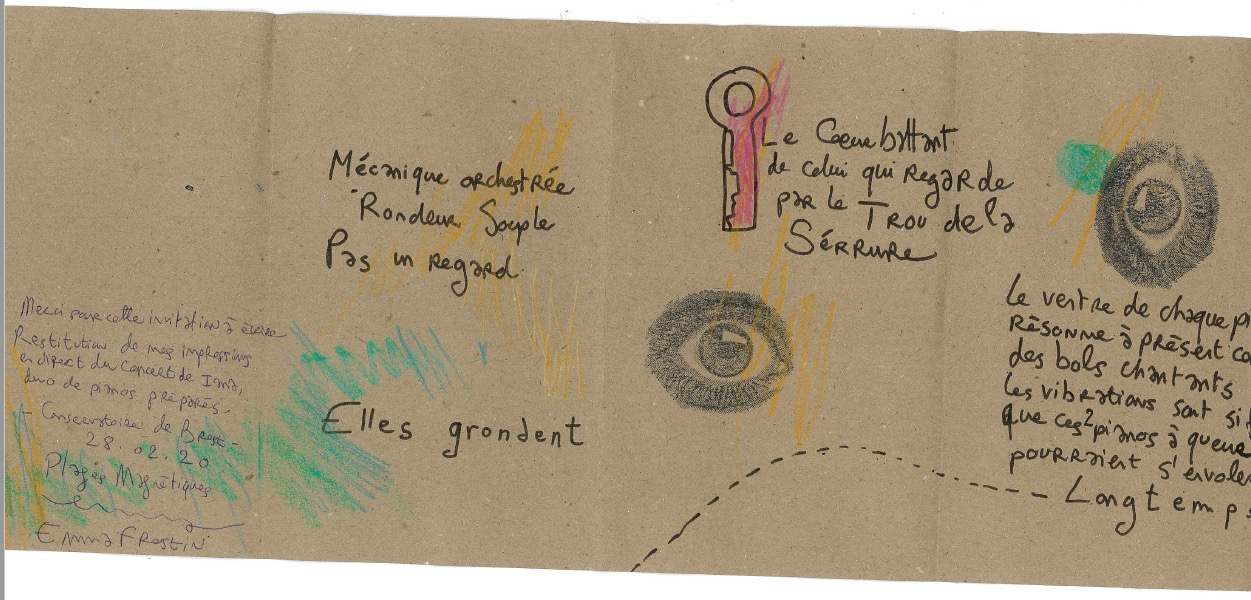 Merci pour cette invitation à écrire
Restitution de mes impressions
en direct du Concert de Ima,
duo de pianos préparés.
- Conservatoire de Brest -
28.02.20
Plages Magnétiques
Emma Frostin
Mécanique orchestrée
Rondeur Souple
Pas un regard
Elles grondent
Le Coeur battant
de celui qui regarde
par le Trou de la
Sérrure
Le ventre de chaque pi
Résonne à présent co
des bols chantants
les vibrations sont si f
que ces 2 pianos à queue
pourraient s'envoler
Longtemps